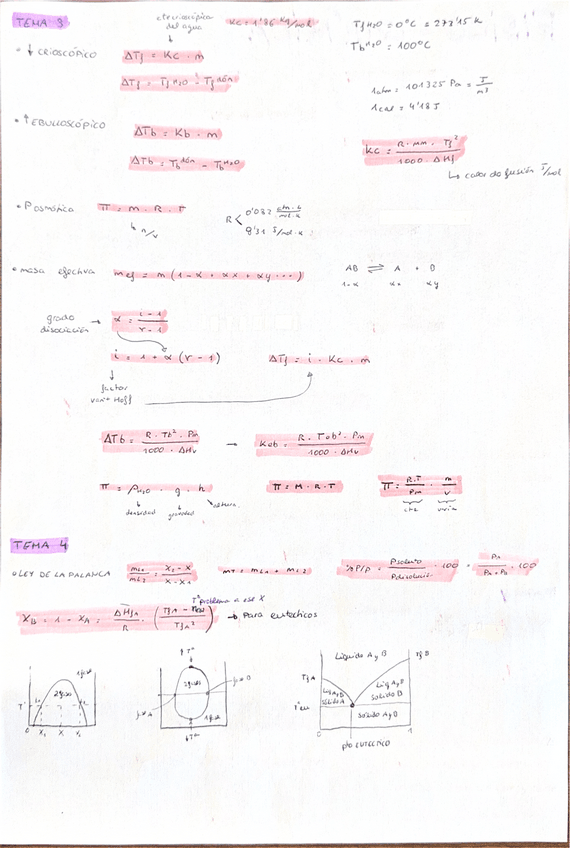 TEMA 3
cte crioscópica del agua
Kc = 1'86 Kg/mol
Tf H2O = 0ºC = 273'15 K
Tb H2O = 100ºC
• ↓ CRIOSCÓPICO
ΔTf = Kc · m
ΔTf = Tf H2O - Tf dón
1 atm = 101325 Pa = J/m3
1 cal = 4'18 J
• ↑ EBULLOSCÓPICO
ΔTb = Kb · m
ΔTb = Tb dón - Tb H2O
Kc = R · mm · Tf² / 1000 · ΔHf
↳ calor de fusión J/mol
• P osmótica
π = m · R · T
↳ n/v
R < 0'082 atm·L/mol·K
8'31 J/mol·K
• masa efectiva
mef = m (1 - α + αx + αy ...)
AB ⇌ A + B
1-α αx αy
grado disociación →
α = i - 1 / r - 1
i = 1 + α (r - 1)
ΔTf = i · Kc · m
↓
factor
van't Hoff
ΔTb = R · Tb² · Pm / 1000 · ΔHv
→
Keb = R · Teb² · Pm / 1000 · ΔHv
π = ρH2O · g · h
densidad gravedad altura
π = M · R · T
π = R·T / Pm · m / V
cte varía
TEMA 4
• LEY DE LA PALANCA
mL1 / mL2 = X2 - X / X - X1
mT = mL1 + mL2
% P/P = Psoluto / Pdisolución · 100 = PA / PA + PB · 100
Tª problema a ese X
XB = 1 - XA = ΔHfA / R · ( TfA - / TfA² ) → Para eutécticos
1 fase
2 fases
T'
L1
L2
0 X1 X X2
↑Tª
2 fases
fase A
fase B
1 fase
↓Tª
Líquido A y B
Tf A
Tf B
Líq A y B
Sólido A
Líq A y B
Sólido B
Tª eu
Sólido A y B
0 1
pto EUTÉCTICO